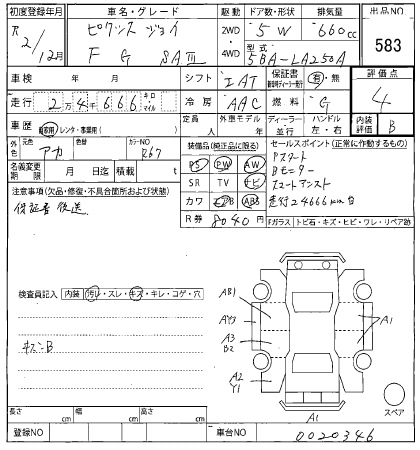 初度登録年月 車名・グレード 駆動 ドア数・形状 排気量 出品NO
R2/12月 ピクシス ジョイ 2WD 5W 660cc 583
F G SAⅢ 4WD 型式 5BA-LA250A
車検 年 月 シフト IAT 保証書 有・無 評価点
走行 2万4千666 キロ・マイル 冷房 AAC 燃料 G 4
車歴 自家用 レンタ・事業用( ) 外車モデル 年 ディーラー・並行 ハンドル 左・右 内装評価 B
色 元色 アカ 色替 カラーNO R67 装備品(純正品に限る) セールスポイント(正常に作動するもの)
名義変更期限 月 日迄 積載 t PS PW AW Pスタート
SR TV ナビ Bモニター
注意事項(欠品・修復・不具合箇所および状態) カワ エアB ABS スマートアシスト
保証書後送 R券 8040円 走行24666km台
Fガラス トビ石・キズ・ヒビ・ワレ・リペア跡
検査員記入 内装 汚レ・スレ・キズ・キレ・コゲ・穴
キズ小B
AB1
AY3
A3
B2
A2
Y1
A1
A1
スペア
長さ cm 幅 cm 高さ cm
登録NO 車台NO 0020346